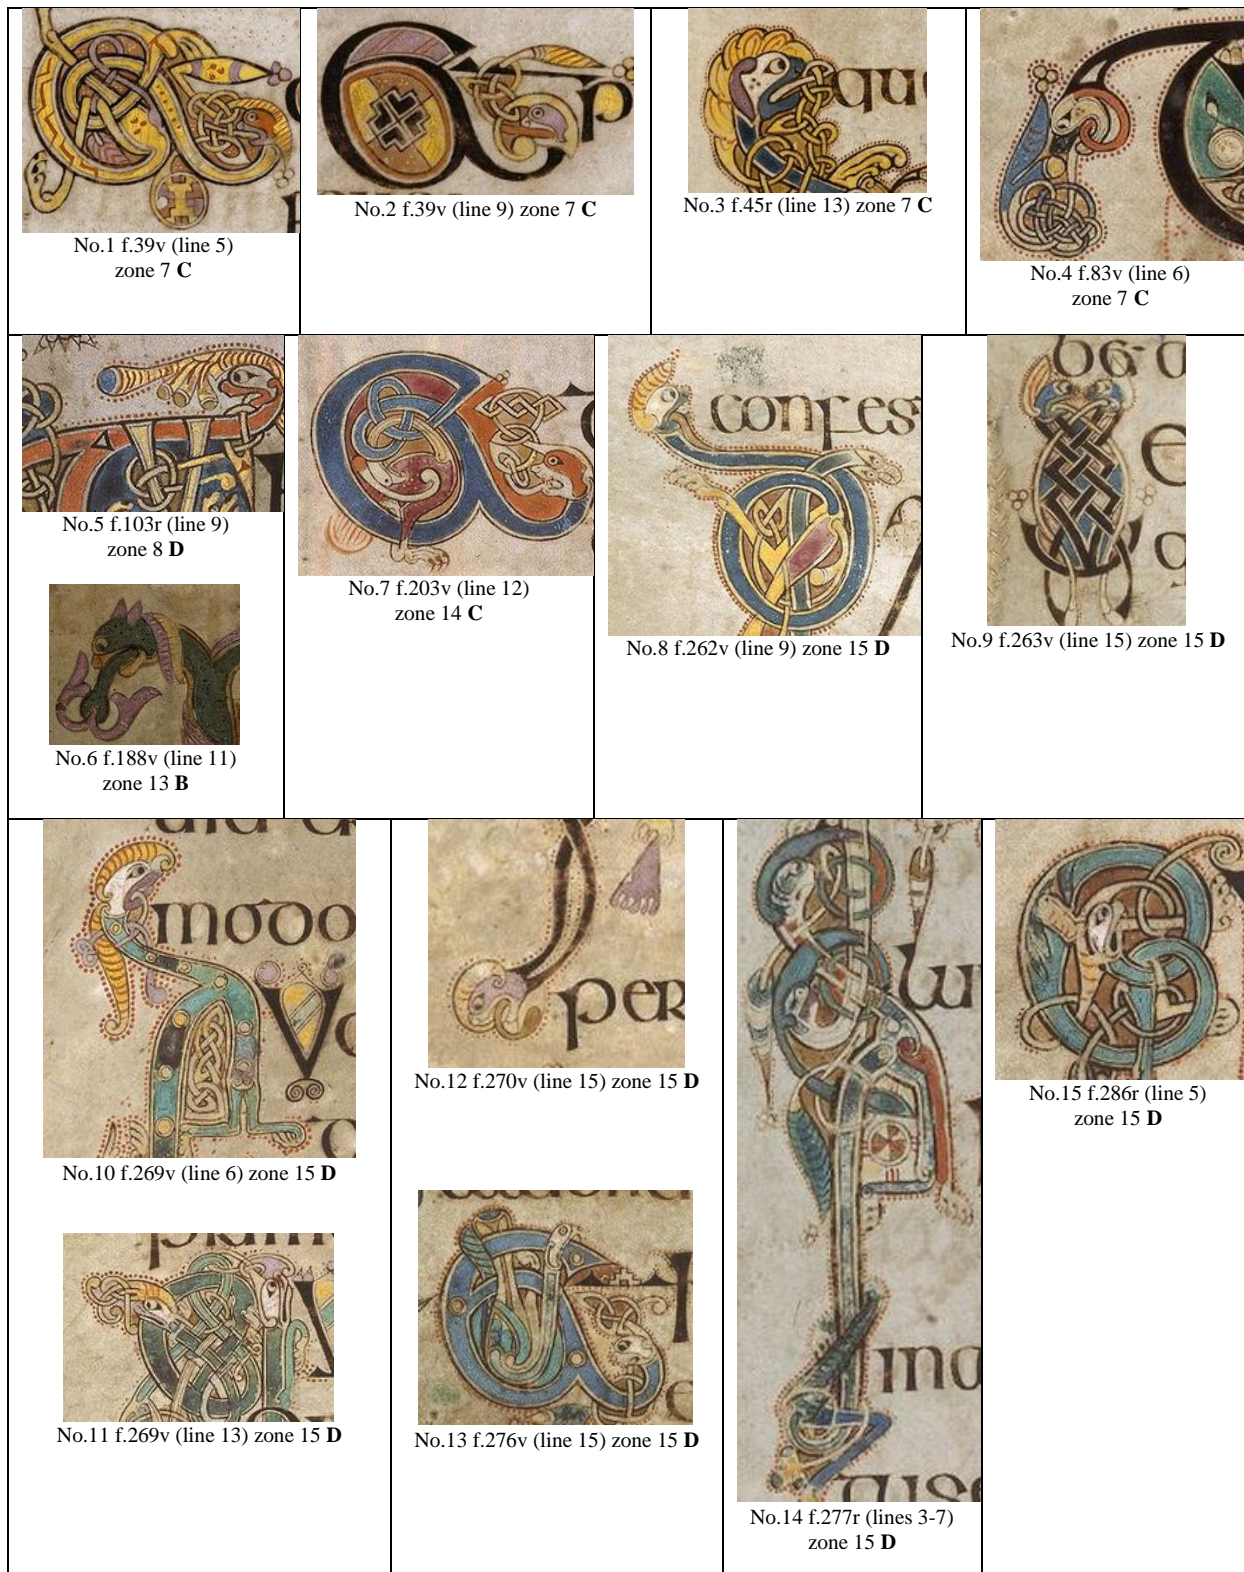 que
No.1 f.39v (line 5)
zone 7 C
No.2 f.39v (line 9) zone 7 C
No.3 f.45r (line 13) zone 7 C
No.4 f.83v (line 6)
zone 7 C
No.5 f.103r (line 9)
zone 8 D
No.6 f.188v (line 11)
zone 13 B
No.7 f.203v (line 12)
zone 14 C
confes
No.8 f.262v (line 9) zone 15 D
No.9 f.263v (line 15) zone 15 D
modo
No.10 f.269v (line 6) zone 15 D
No.11 f.269v (line 13) zone 15 D
per
No.12 f.270v (line 15) zone 15 D
No.13 f.276v (line 15) zone 15 D
No.14 f.277r (lines 3-7)
zone 15 D
No.15 f.286r (line 5)
zone 15 D